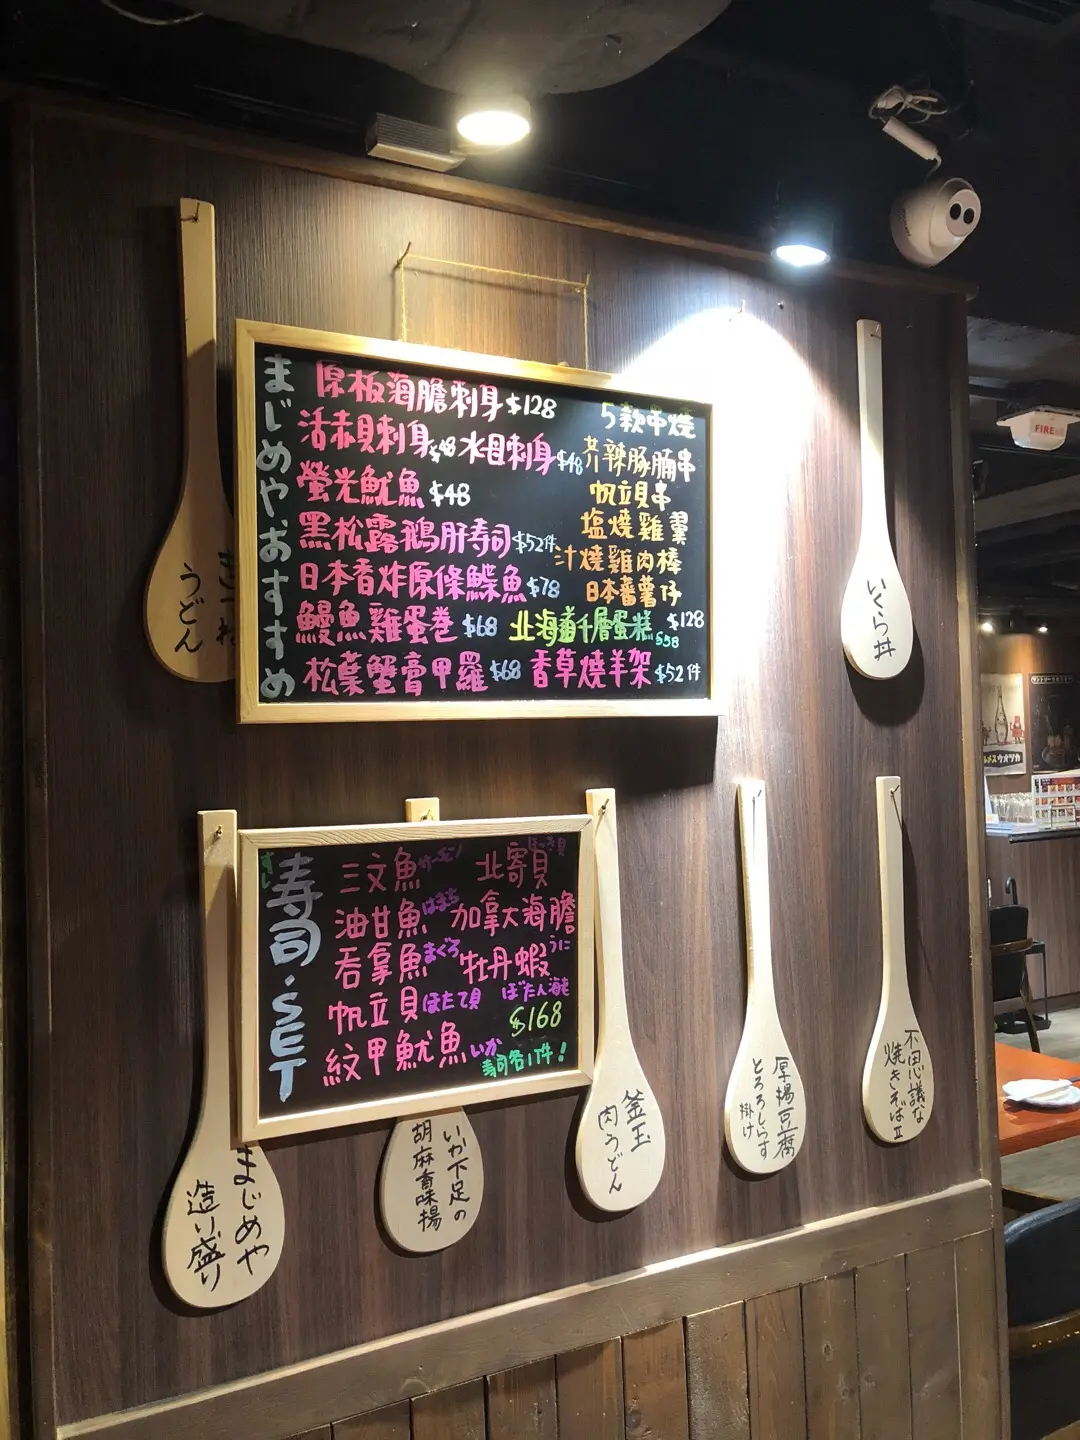 まじめやおすすめ
原板海膽刺身 $128
活赤貝刺身 $48 水母刺身 $48
螢光魷魚 $48
黑松露鵝肝寿司 $52件
日本香炸原條鰈魚 $78
鰻魚雞蛋卷 $68
北海道千層蛋糕 $58
松葉蟹膏甲羅 $68
香草燒羊架 $52件
5款串燒
芥辣豚腩串
帆立貝串
塩燒雞翼
汁燒雞肉棒
日本蕃薯仔
$128
うどん
いくら丼
すし
寿司・SET
三文魚 サーモン
油甘魚 はまち
吞拿魚 まぐろ
帆立貝 ほたて貝
紋甲魷魚 いか
北寄貝 ほっき貝
加拿大海膽 うに
牡丹蝦 ぼたん海老
$168
寿司各1件!
まじめや
造り盛り
いか下足の
胡麻香味揚
釜玉
肉うどん
厚揚豆腐
とろろしらす
掛け
不思議な
焼きそばII
FIRE